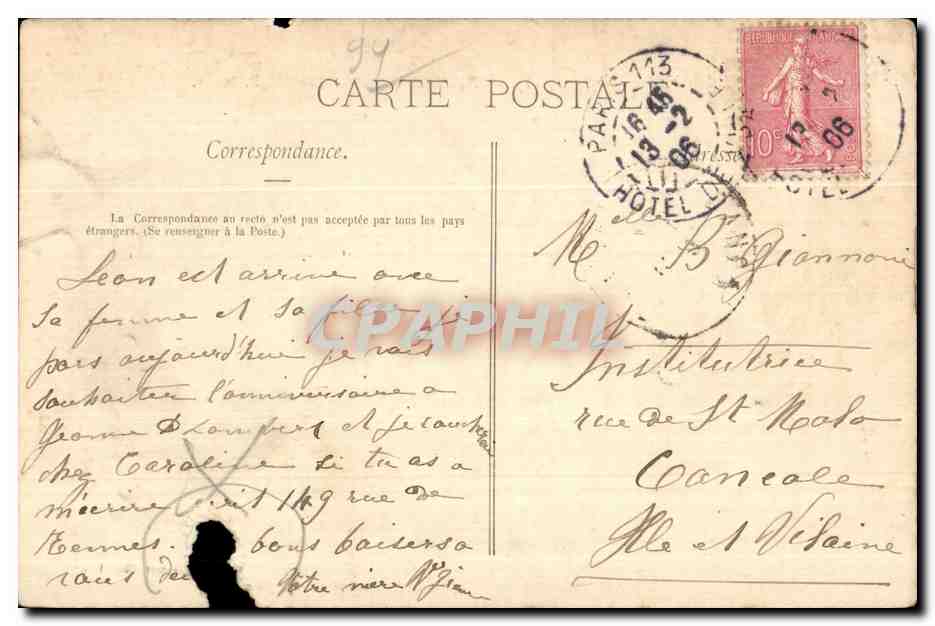 94
CARTE POSTALE
Correspondance.
La Correspondance au recto n'est pas acceptée par tous les pays
étrangers. (Se renseigner à la Poste.)
Léon est arrivé avec
sa femme et sa fille je
pars aujourd'hui je vais
souhaiter l'anniversaire a
Jeanne et je coucherai
chez Caroline si tu as a
m'écrire écrit 149 rue de
Rennes. bons baisers a
Votre mère
REPUBLIQUE FRANÇAISE
10c
PARIS 113
16 45
13 -2
06
HOTEL
13 2
06
HOTEL
Adresse
Melle B Giannoni
Institutrice
rue de St Malo
Cancale
Ille et Vilaine
CPAPHIL